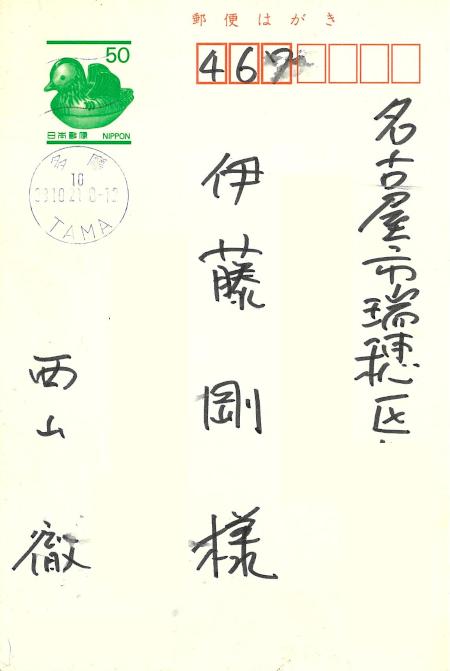 郵便はがき
50
日本郵便 NIPPON
467
多摩
10
TAMA
名古屋市瑞穂区
伊藤剛様
西山徹